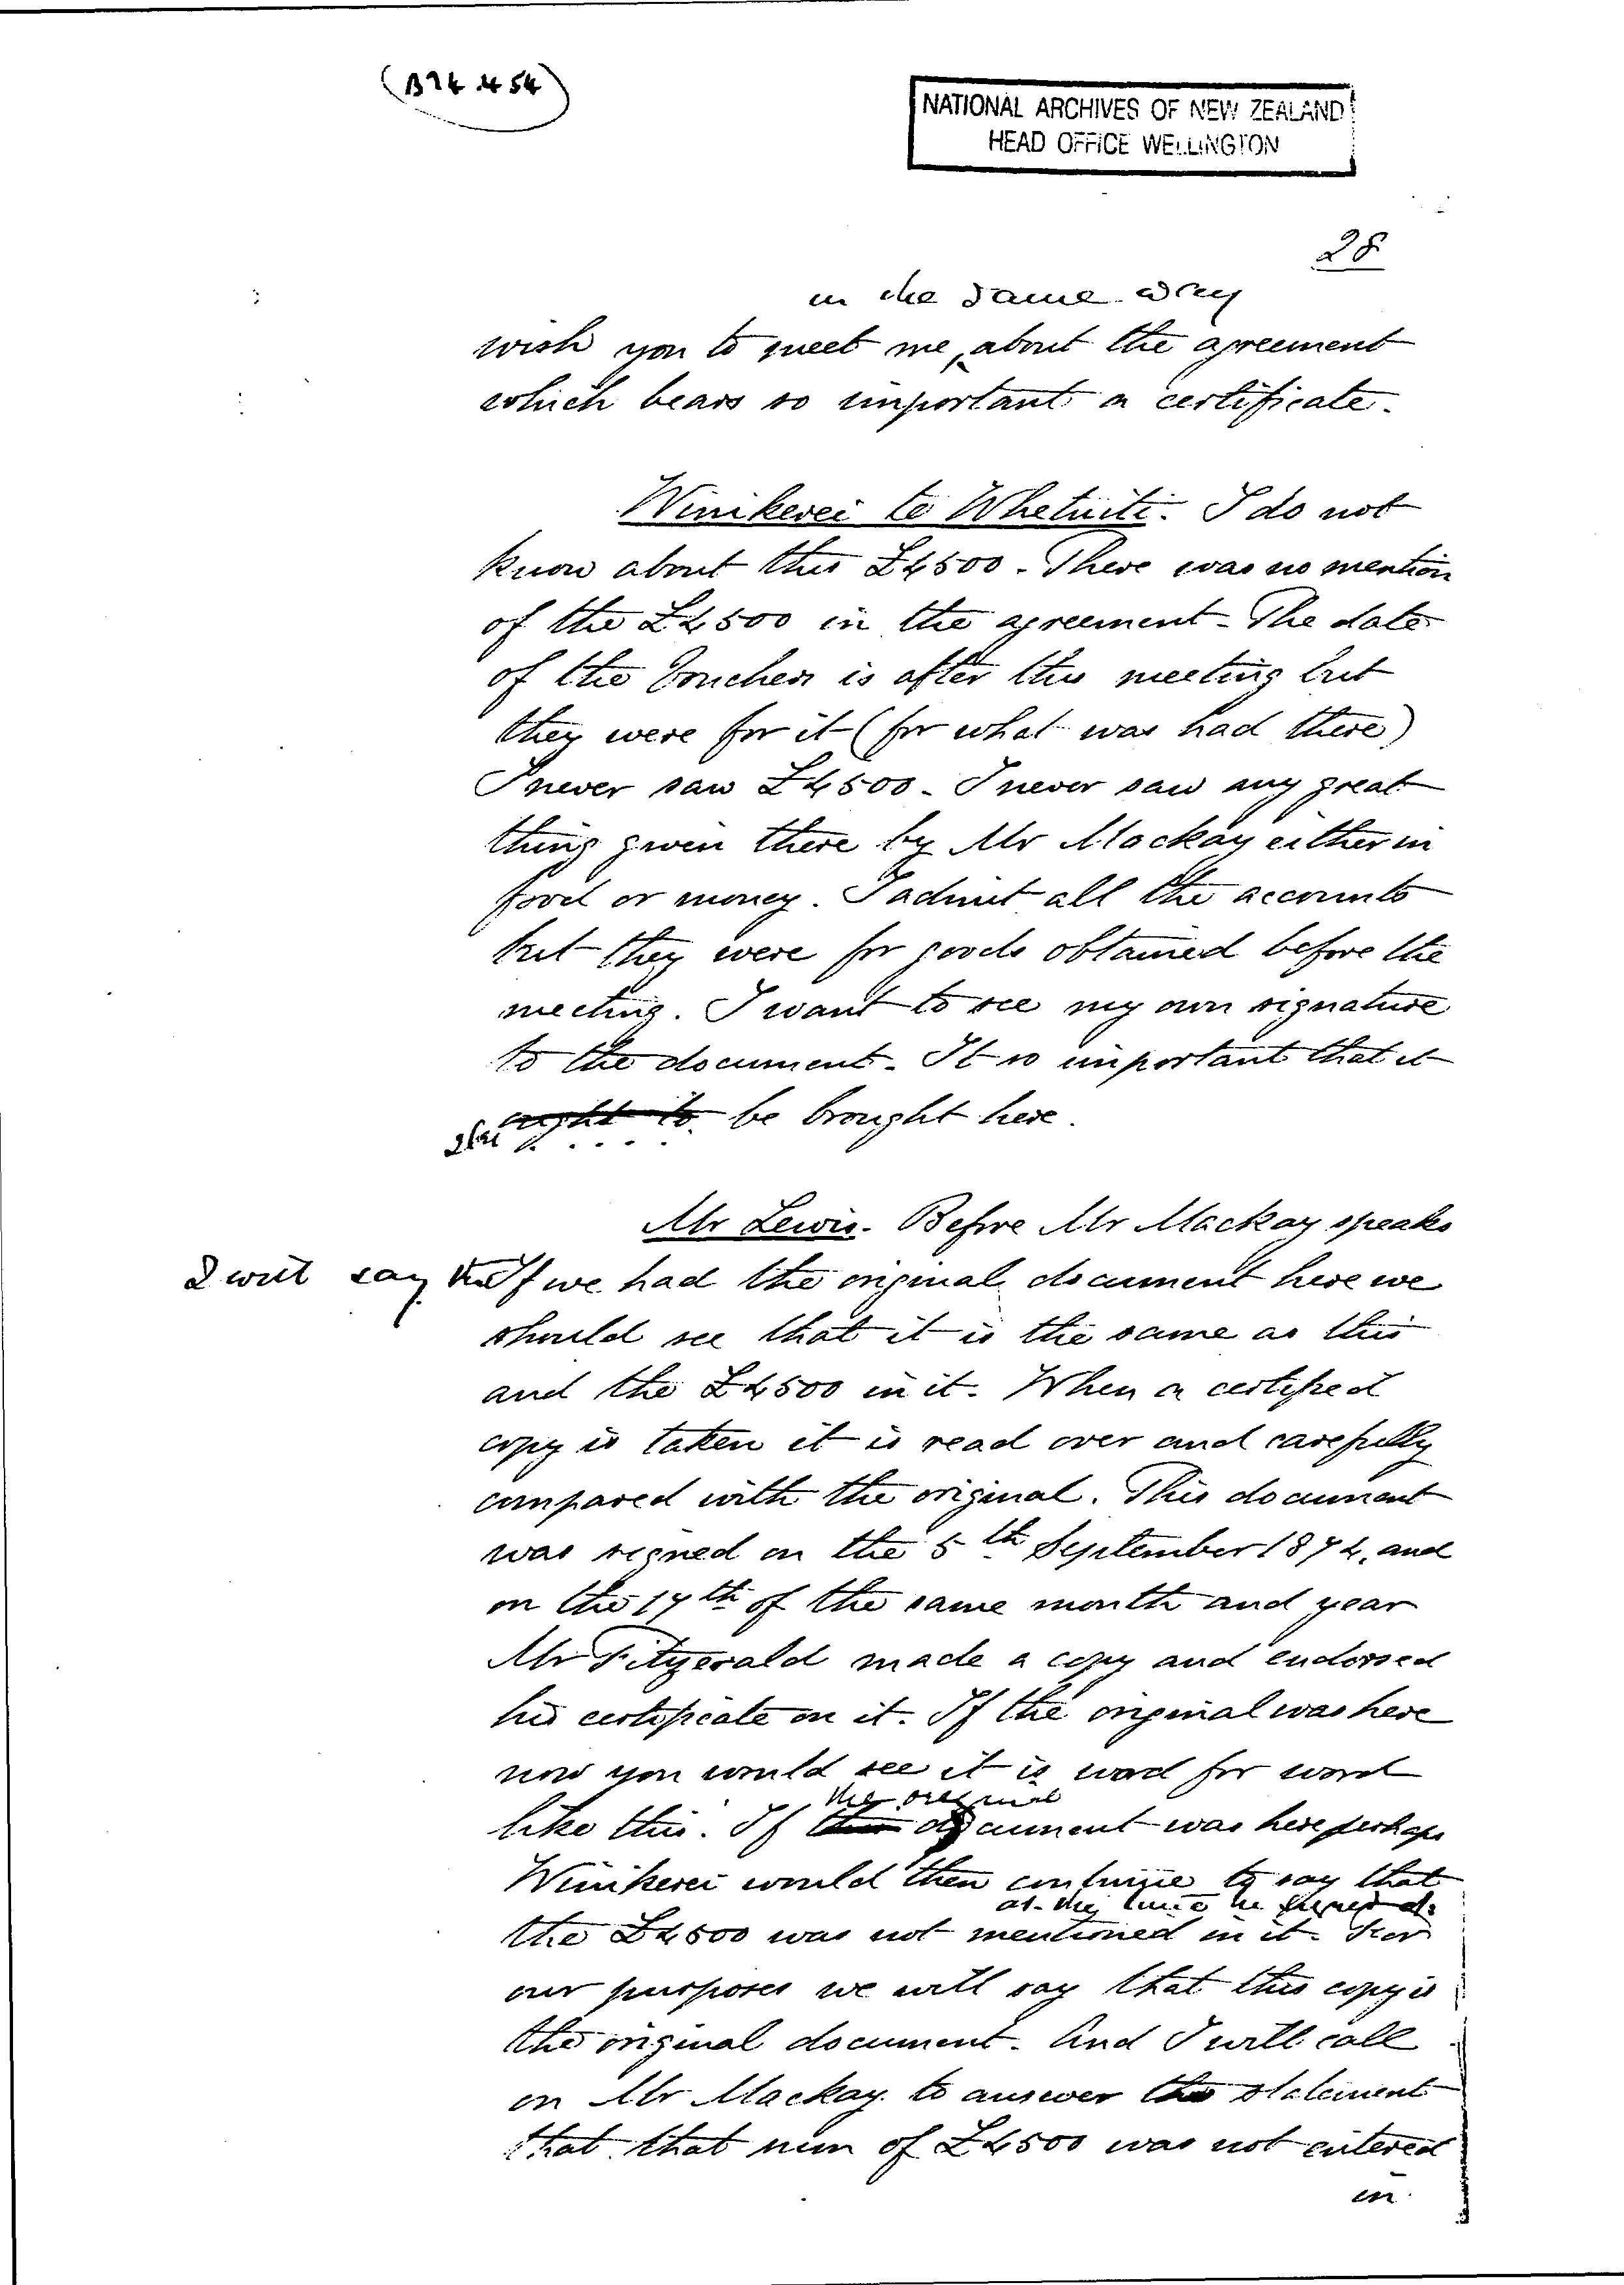 NATIONAL ARCHIVES OF NEW ZEALAND
HEAD OFFICE WELLINGTON
28
in the same way
wish you to meet me, about the agreement
which bears so important a certificate.
Winikerei te Whetuiti. I do not
know about this £4500. There was no mention
of the £4500 in the agreement. The date
of the Vouchers is after this meeting but
they were for it (for what was had there)
I never saw £4500. I never saw any great
thing given there by Mr Mackay either in
food or money. I admit all the accounts
but they were for goods obtained before the
meeting. I want to see my own signature
to the document. It is important that it
ought to be brought here.
Mr Lewis. Before Mr Mackay speaks
I will say that If we had the original document here we
should see that it is the same as this
and the £4500 in it. When a certified
copy is taken it is read over and carefully
compared with the original. This document
was signed on the 5th September 1874, and
on the 17th of the same month and year
Mr Fitzgerald made a copy and endorsed
his certificate on it. If the original was here
now you would see it is word for word
the original
like this. If document was here perhaps
Winikerei would then continue to say that
at the time he signed it.
the £4500 was not mentioned in it. For
our purposes we will say that this copy is
the original document. And I will call
on Mr Mackay to answer the statement
that that sum of £4500 was not entered
in